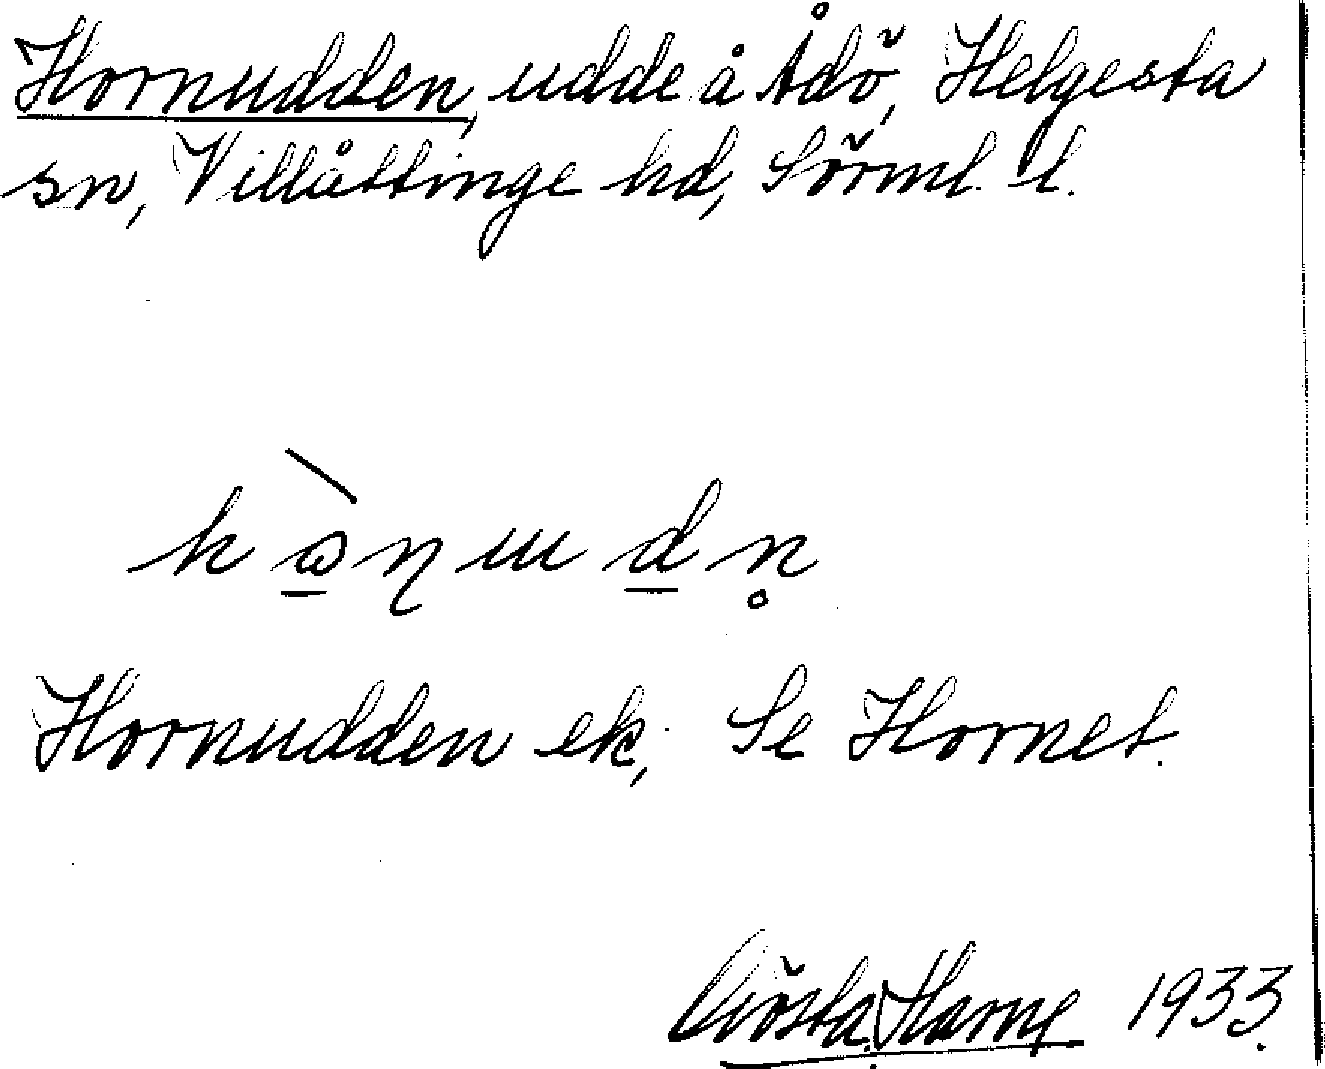 Hornudden, udde å Ådö, Helgesta
sn, Villåttinge hd, Sörml. l.
hɷ̀ɳudn̥
Hornudden ek, Se Hornet.
Gösta Harne 1933.